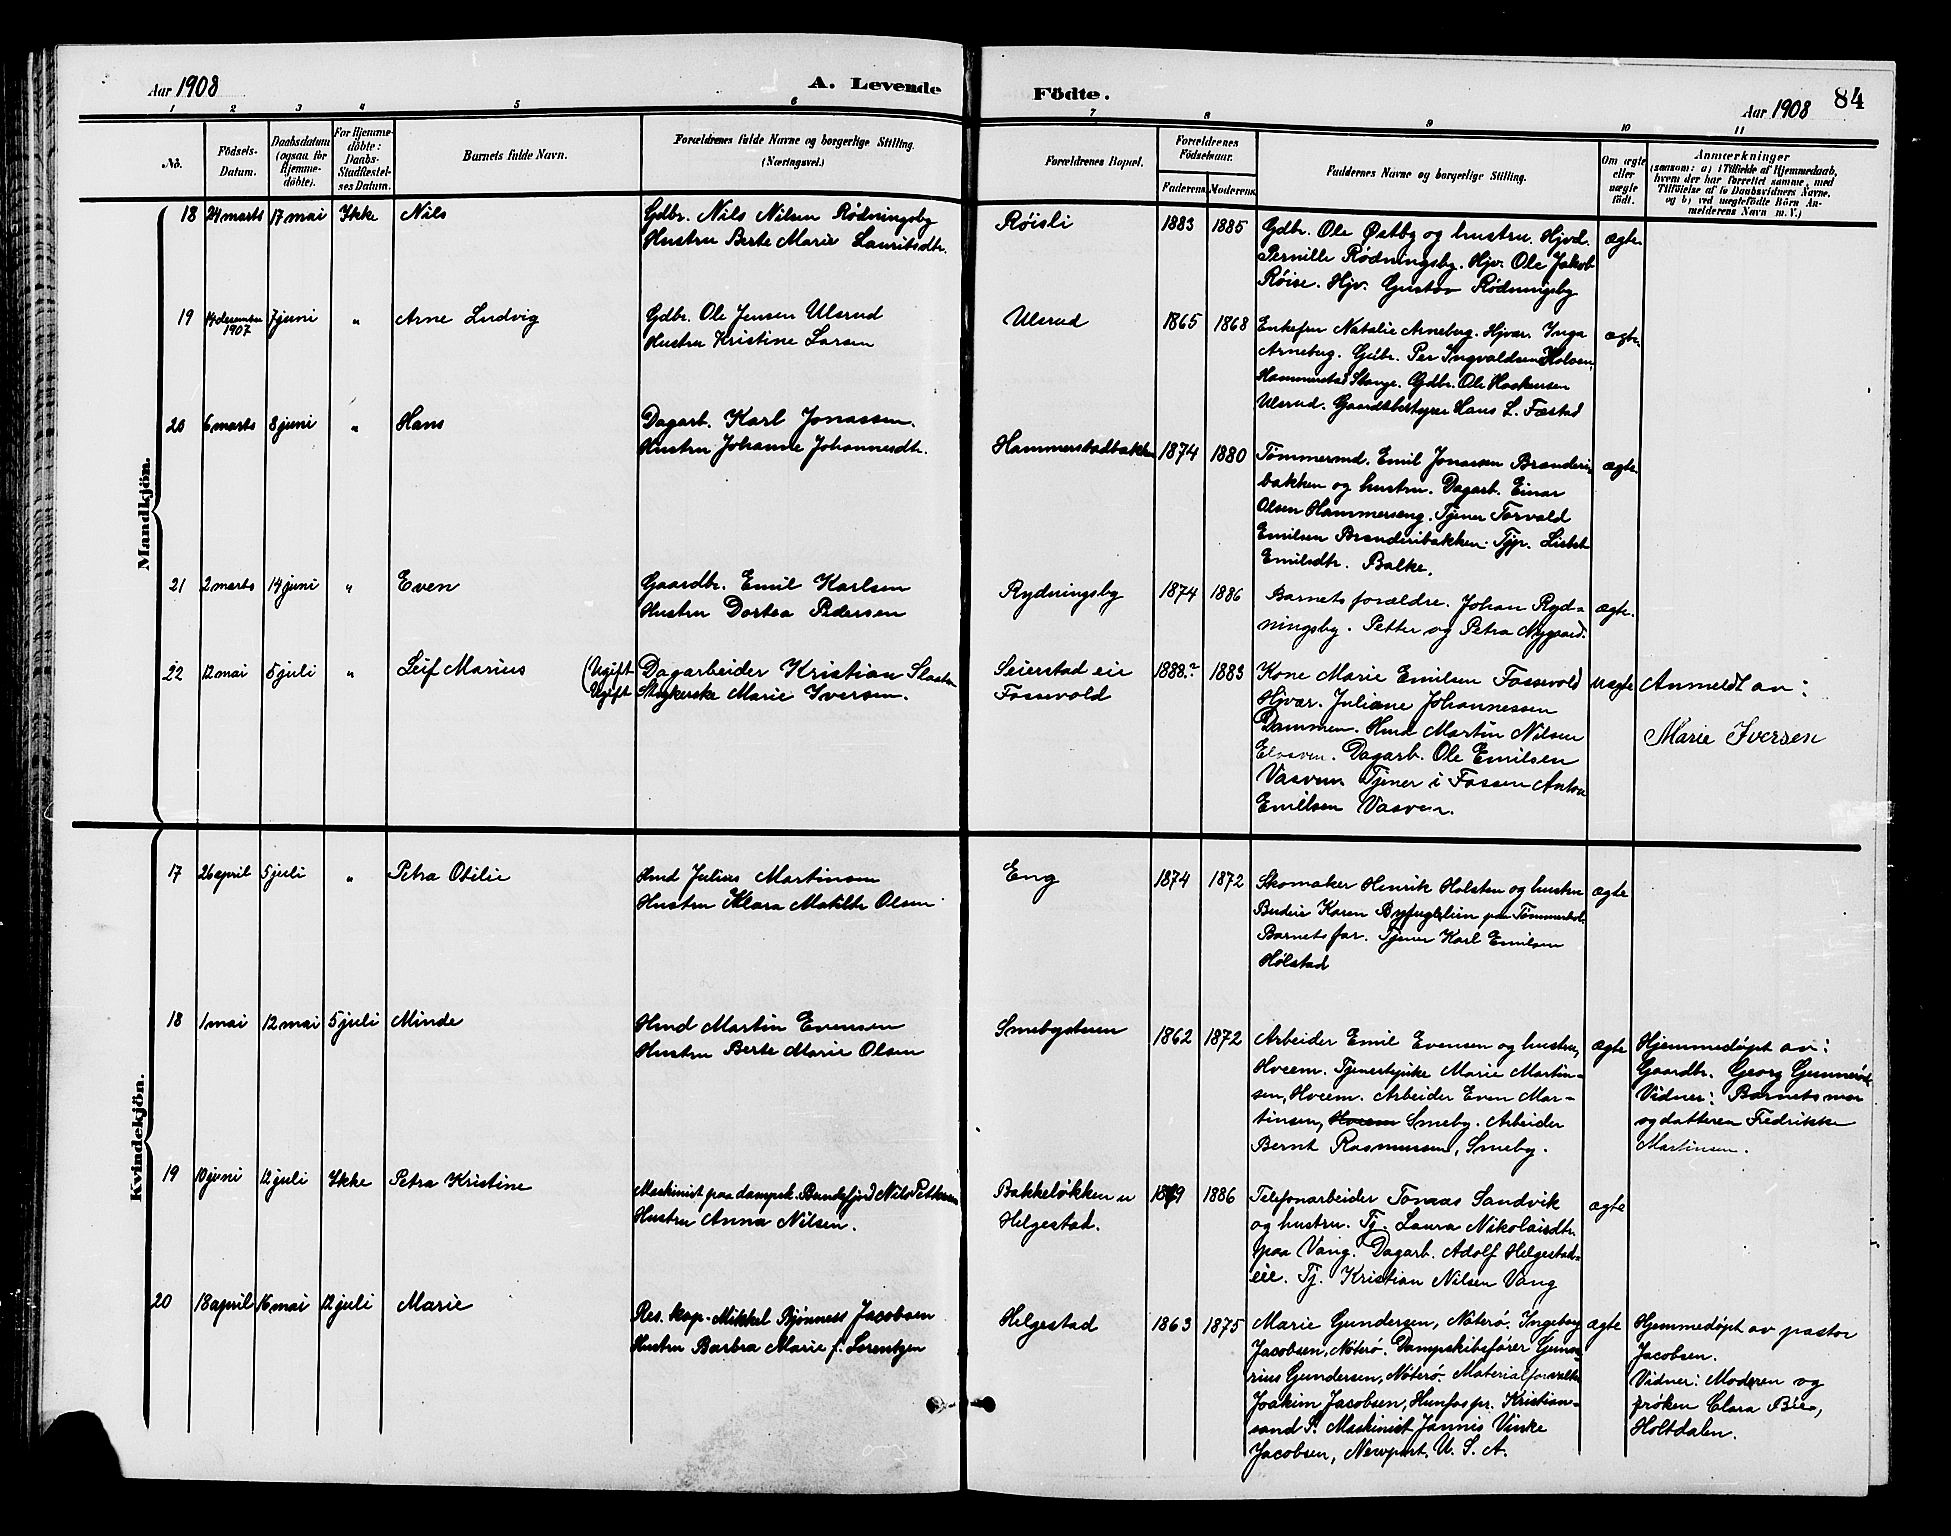 Aar 1908
A. Levende
Födte.
Aar 1908
84
1 2 3 4 5 6 7 8 9 10 11
No.
Födsels-Datum.
Daabsdatum (ogsaa for Hjemme-döbte).
For Hjemme-döbte: Daabs-Stadfæstel-ses Datum.
Barnets fulde Navn.
Forældrenes fulde Navne og borgerlige Stilling. (Næringsvei.)
Forældrenes Bopæl.
Forældrenes Födselsaar.
Faderens. Moderens.
Faddernes Navne og borgerlige Stilling.
Om ægte eller uægte födt.
Anmærkninger
(saasom: a) i Tilfælde af Hjemmedaab, hvem der har forrettet samme, med Tilföielse af to Daabsvidners Navne, og b) ved uægtefödte Börn An-melderens Navn m. V.)
Mandkjön.
18 24 marts 17 mai Ikke Nils
Gdbr. Nils Nilsen Rødningsby
Hustru Berte Marie Lauritsdtr.
Røisli 1883 1885
Gdbr. Ole Østby og hustru. Hjvd.
Pernille Rødningsby. Hjv. Ole Jakob
Røise. Hjv. Gustav Rødningsby
ægte
19 14 december 1907 7 juni " Arne Ludvig
Gdbr. Ole Jensen Ulsrud
Hustru Kristine Larsen
Ulsrud 1865 1868
Enkefru Natalie Arneberg. Hjvær. Inga
Arneberg. Gdbr. Per Ingvaldsen Holsen
Hammerstad Stange. Gdbr. Ole Haakensen
Ulsrud. Gaardsbestyrer Hans L. Fæstad
ægte
20 6 marts 8 juni " Hans
Dagarb. Karl Jonassen.
Hustru Johanne Johannesdtr.
Hammerstadbakken 1874 1880
Tømmermd. Emil Jonassen Brænderi-
bakken og hustru. Dagarb. Einar
Olsen Hammerseng. Tjener Torvald
Emilsen Brænderibakken. Tjp. Lisbet
Emilsdtr. Balke.
ægte
21 2 marts 14 juni " Even
Gaardbr. Emil Karlsen
Hustru Dortea Pedersen
Rydningsby 1874 1886
Barnets forældre. Johan Ryd-
ningsby. Petter og Petra Nygaard.
ægte.
22 12 mai 5 juli " Leif Marius
(Ugift Dagarbeider Kristian Slaaten
Ugift Strykerske Marie Iversen.
Seierstad eie
Fossevold
1888? 1883
Kone Marie Emilsen Fossevold
Hjvær. Juliane Johannessen
Dammen. Hmd Martin Nilsen
Elvsven. Dagarb. Ole Emilsen
Vasveen Tjener i Fossen Anton
Emilsen Vasveen.
uægte
Anmeldt av:
Marie Iversen
Kvindekjön.
17 26 april 5 juli " Petra Otilie
Hmd Julius Martinsen
Hustru Klara Matilde Olsen
Eng 1874 1872
Skomaker Henrik Holsten og hustru
Budeie Karen Byfuglien paa Tømmerhol.
Barnets far. Tjener Karl Emilsen
Hølstad
ægte
18 1 mai 12 mai 5 juli Minda
Hmd Martin Evensen
Hustru Berte Marie Olsen
Smebysteen 1862 1872
Arbeider Emil Evensen og hustru,
Hveem. Tjenestepike Marie Martin-
sen, Hveem. Arbeider Even Mar-
tinsen, Hveem Smeby. Arbeider
Bernt Rasmussen, Smeby.
ægte
Hjemmedøpt av:
Gaardbr. Georg Gunnerød
Vidner: Barnets mor
og datteren Fredrikke
Martinsen.
19 10 juni 12 juli Ikke Petra Kristine
Maskinist paa dampsk. Bundefjord Nils Pettersen
Hustru Anna Nilsen.
Bakkeløkken u
Helgestad.
1879 1886
Telefonarbeider Tomas Sandvik
og hustru. Tj. Laura Nikolaisdtr.
paa Vang. Dagarb. Adolf Helgestad-
eie. Tj. Kristian Nilsen Vang
ægte
20 18 april 16 mai 12 juli Marie
Res. kap. Mikkel Bjønness Jacobsen
Hustru Barbra Marie f. Lorentzen
Helgestad 1863 1875
Marie Gundersen, Nøterø. Ingeborg
Jacobsen, Nøterø. Dampskibsfører Guna-
rius Gundersen, Nøterø. Materialforvalter
Joakim Jacobsen, Hunfos pr. Kristian-
sand S. Maskinist Jannis Vinke
Jacobsen, Newport. U. S. A.
ægte
Hjemmedøpt av pastor
Jacobsen.
Vidner: Moderen og
frøken Clara Bie,
Holtdalen.